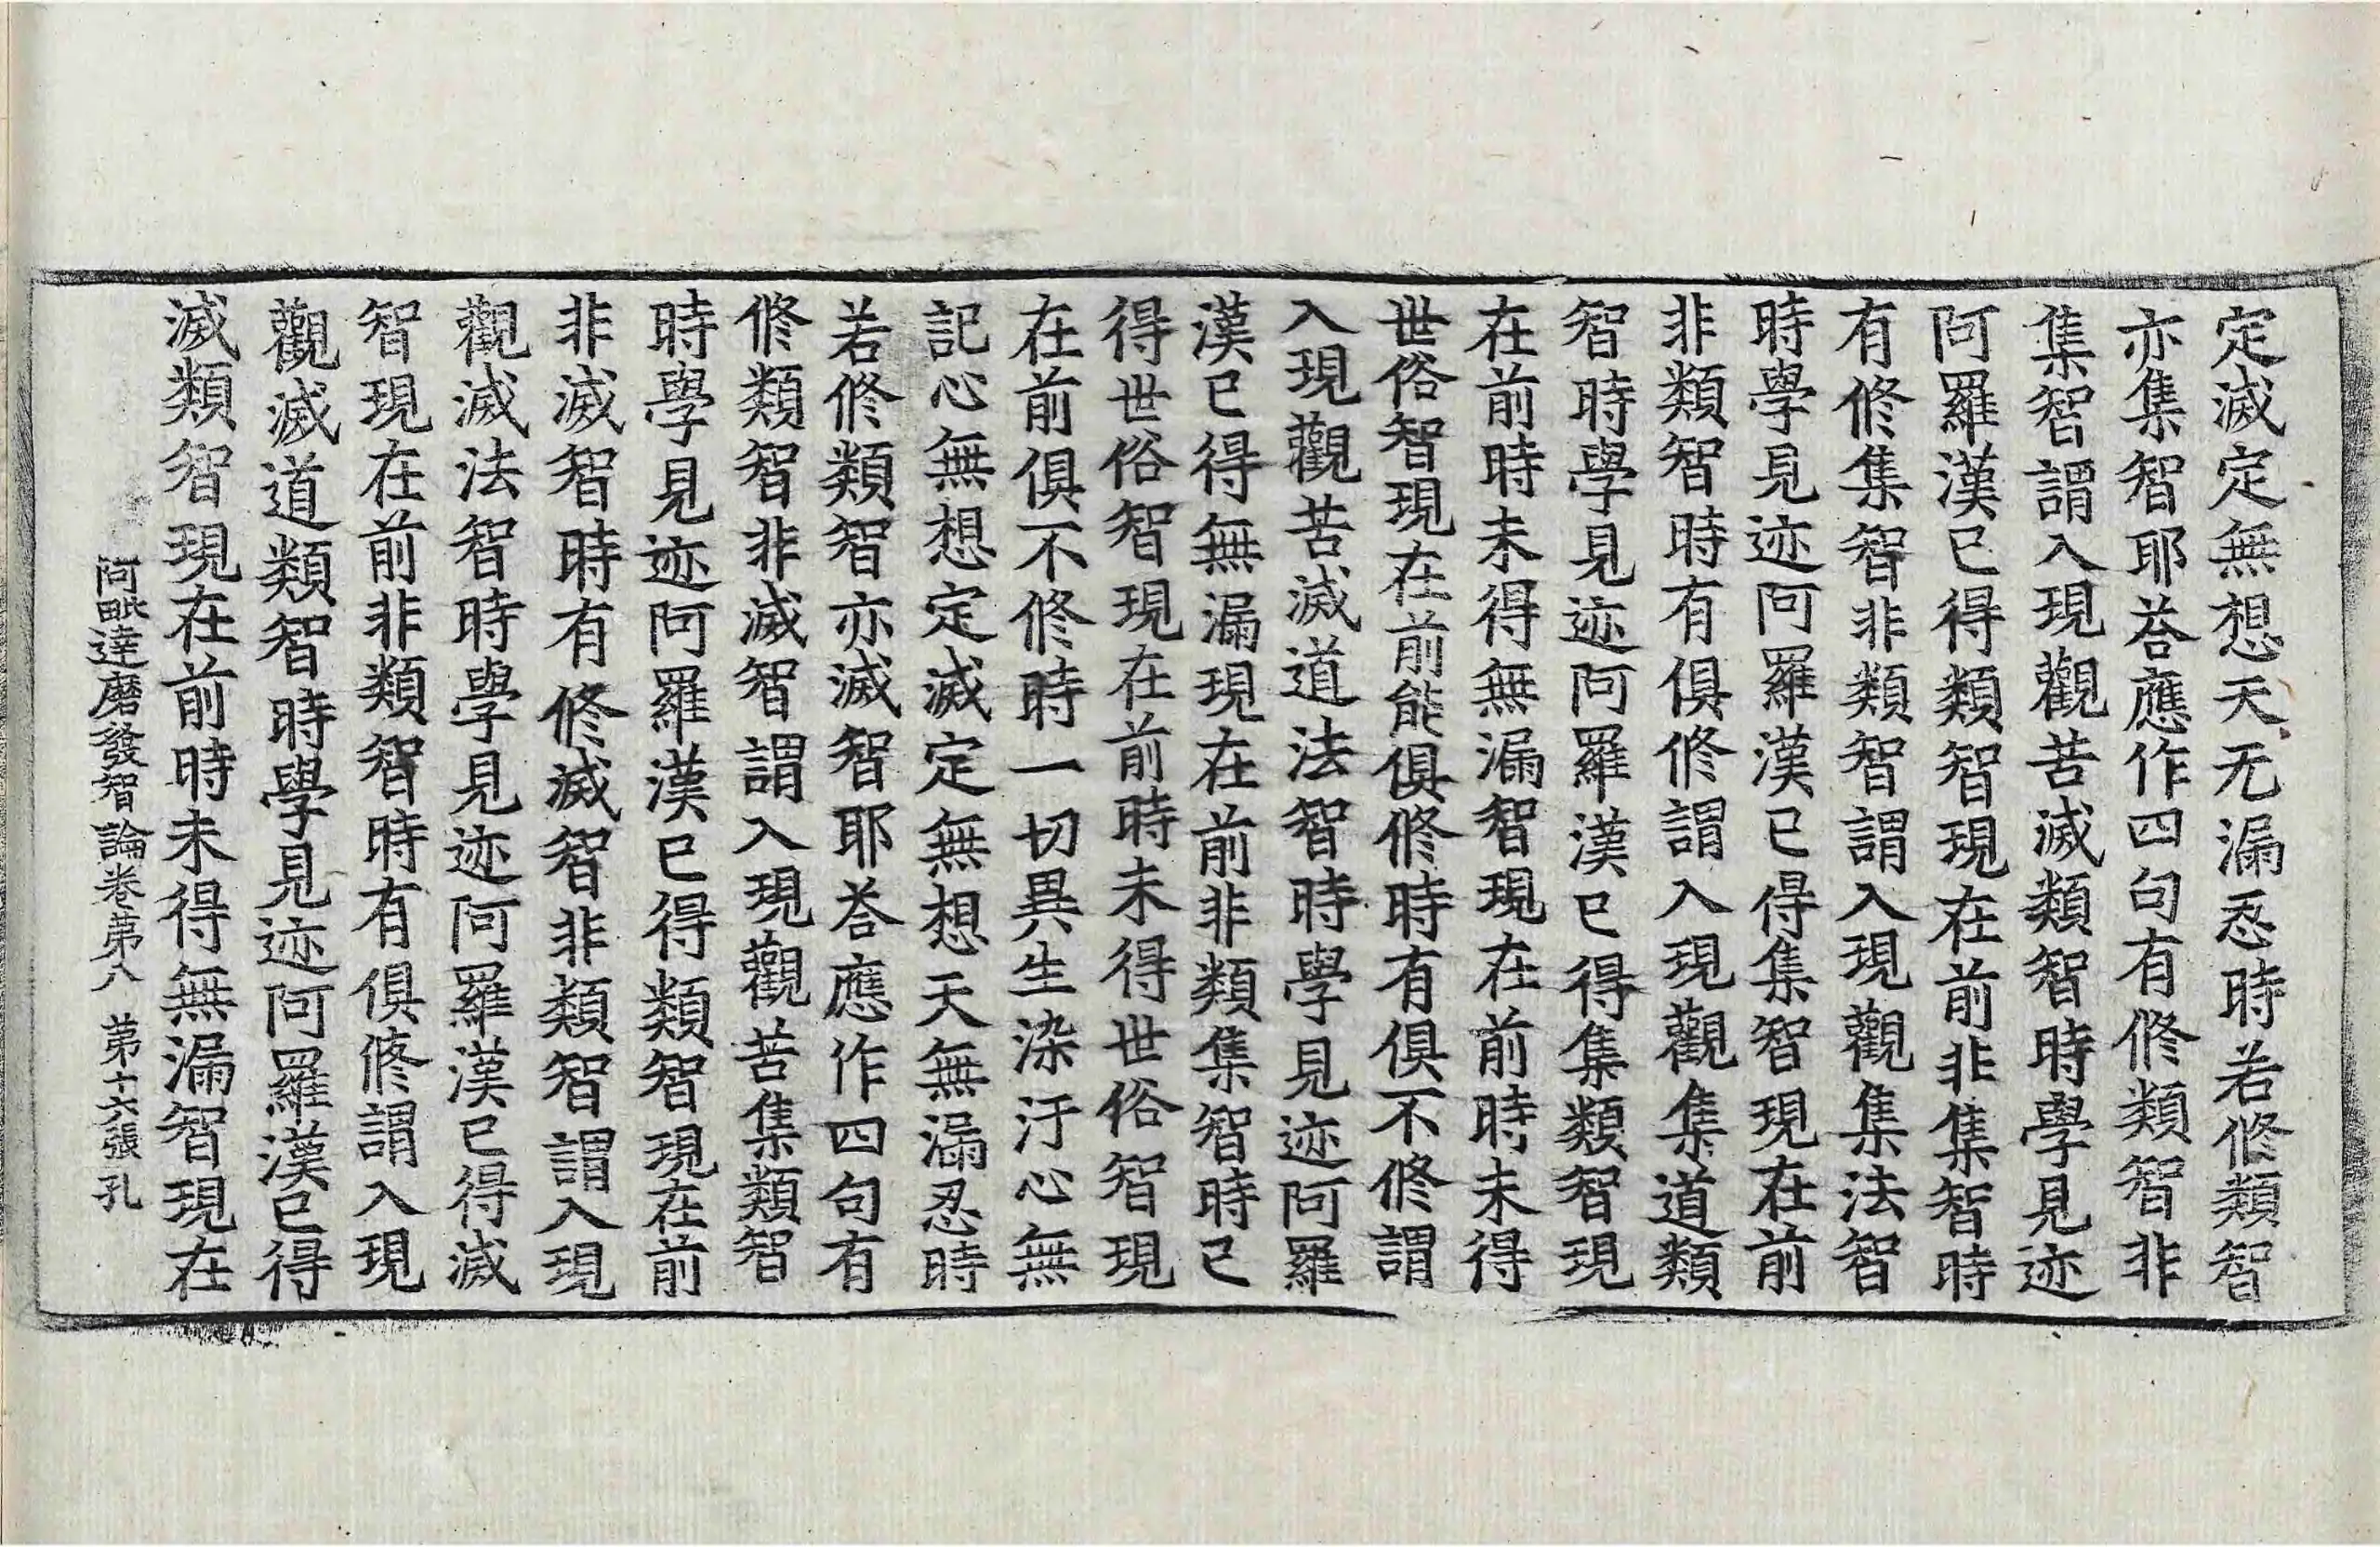 定滅定無想天无漏忍時若修類智
亦集智耶荅應作四句有修類智非
集智謂入現觀苦滅類智時學見迹
阿羅漢已得類智現在前非集智時
有修集智非類智謂入現觀集法智
時學見迹阿羅漢已得集智現在前
非類智時有俱修謂入現觀集道類
智時學見迹阿羅漢已得集類智現
在前時未得無漏智現在前時未得
世俗智現在前能俱修時有俱不修謂
入現觀苦滅道法智時學見迹阿羅
漢已得無漏現在前非類集智時已
得世俗智現在前時未得世俗智現
在前俱不修時一切異生染汙心無
記心無想定滅定無想天無漏忍時
若修類智亦滅智耶荅應作四句有
修類智非滅智謂入現觀苦集類智
時學見迹阿羅漢已得類智現在前
非滅智時有修滅智非類智謂入現
觀滅法智時學見迹阿羅漢已得滅
智現在前非類智時有俱修謂入現
觀滅道類智時學見迹阿羅漢已得
滅類智現在前時未得無漏智現在
阿毗達磨發智論卷第八 第十六張 孔